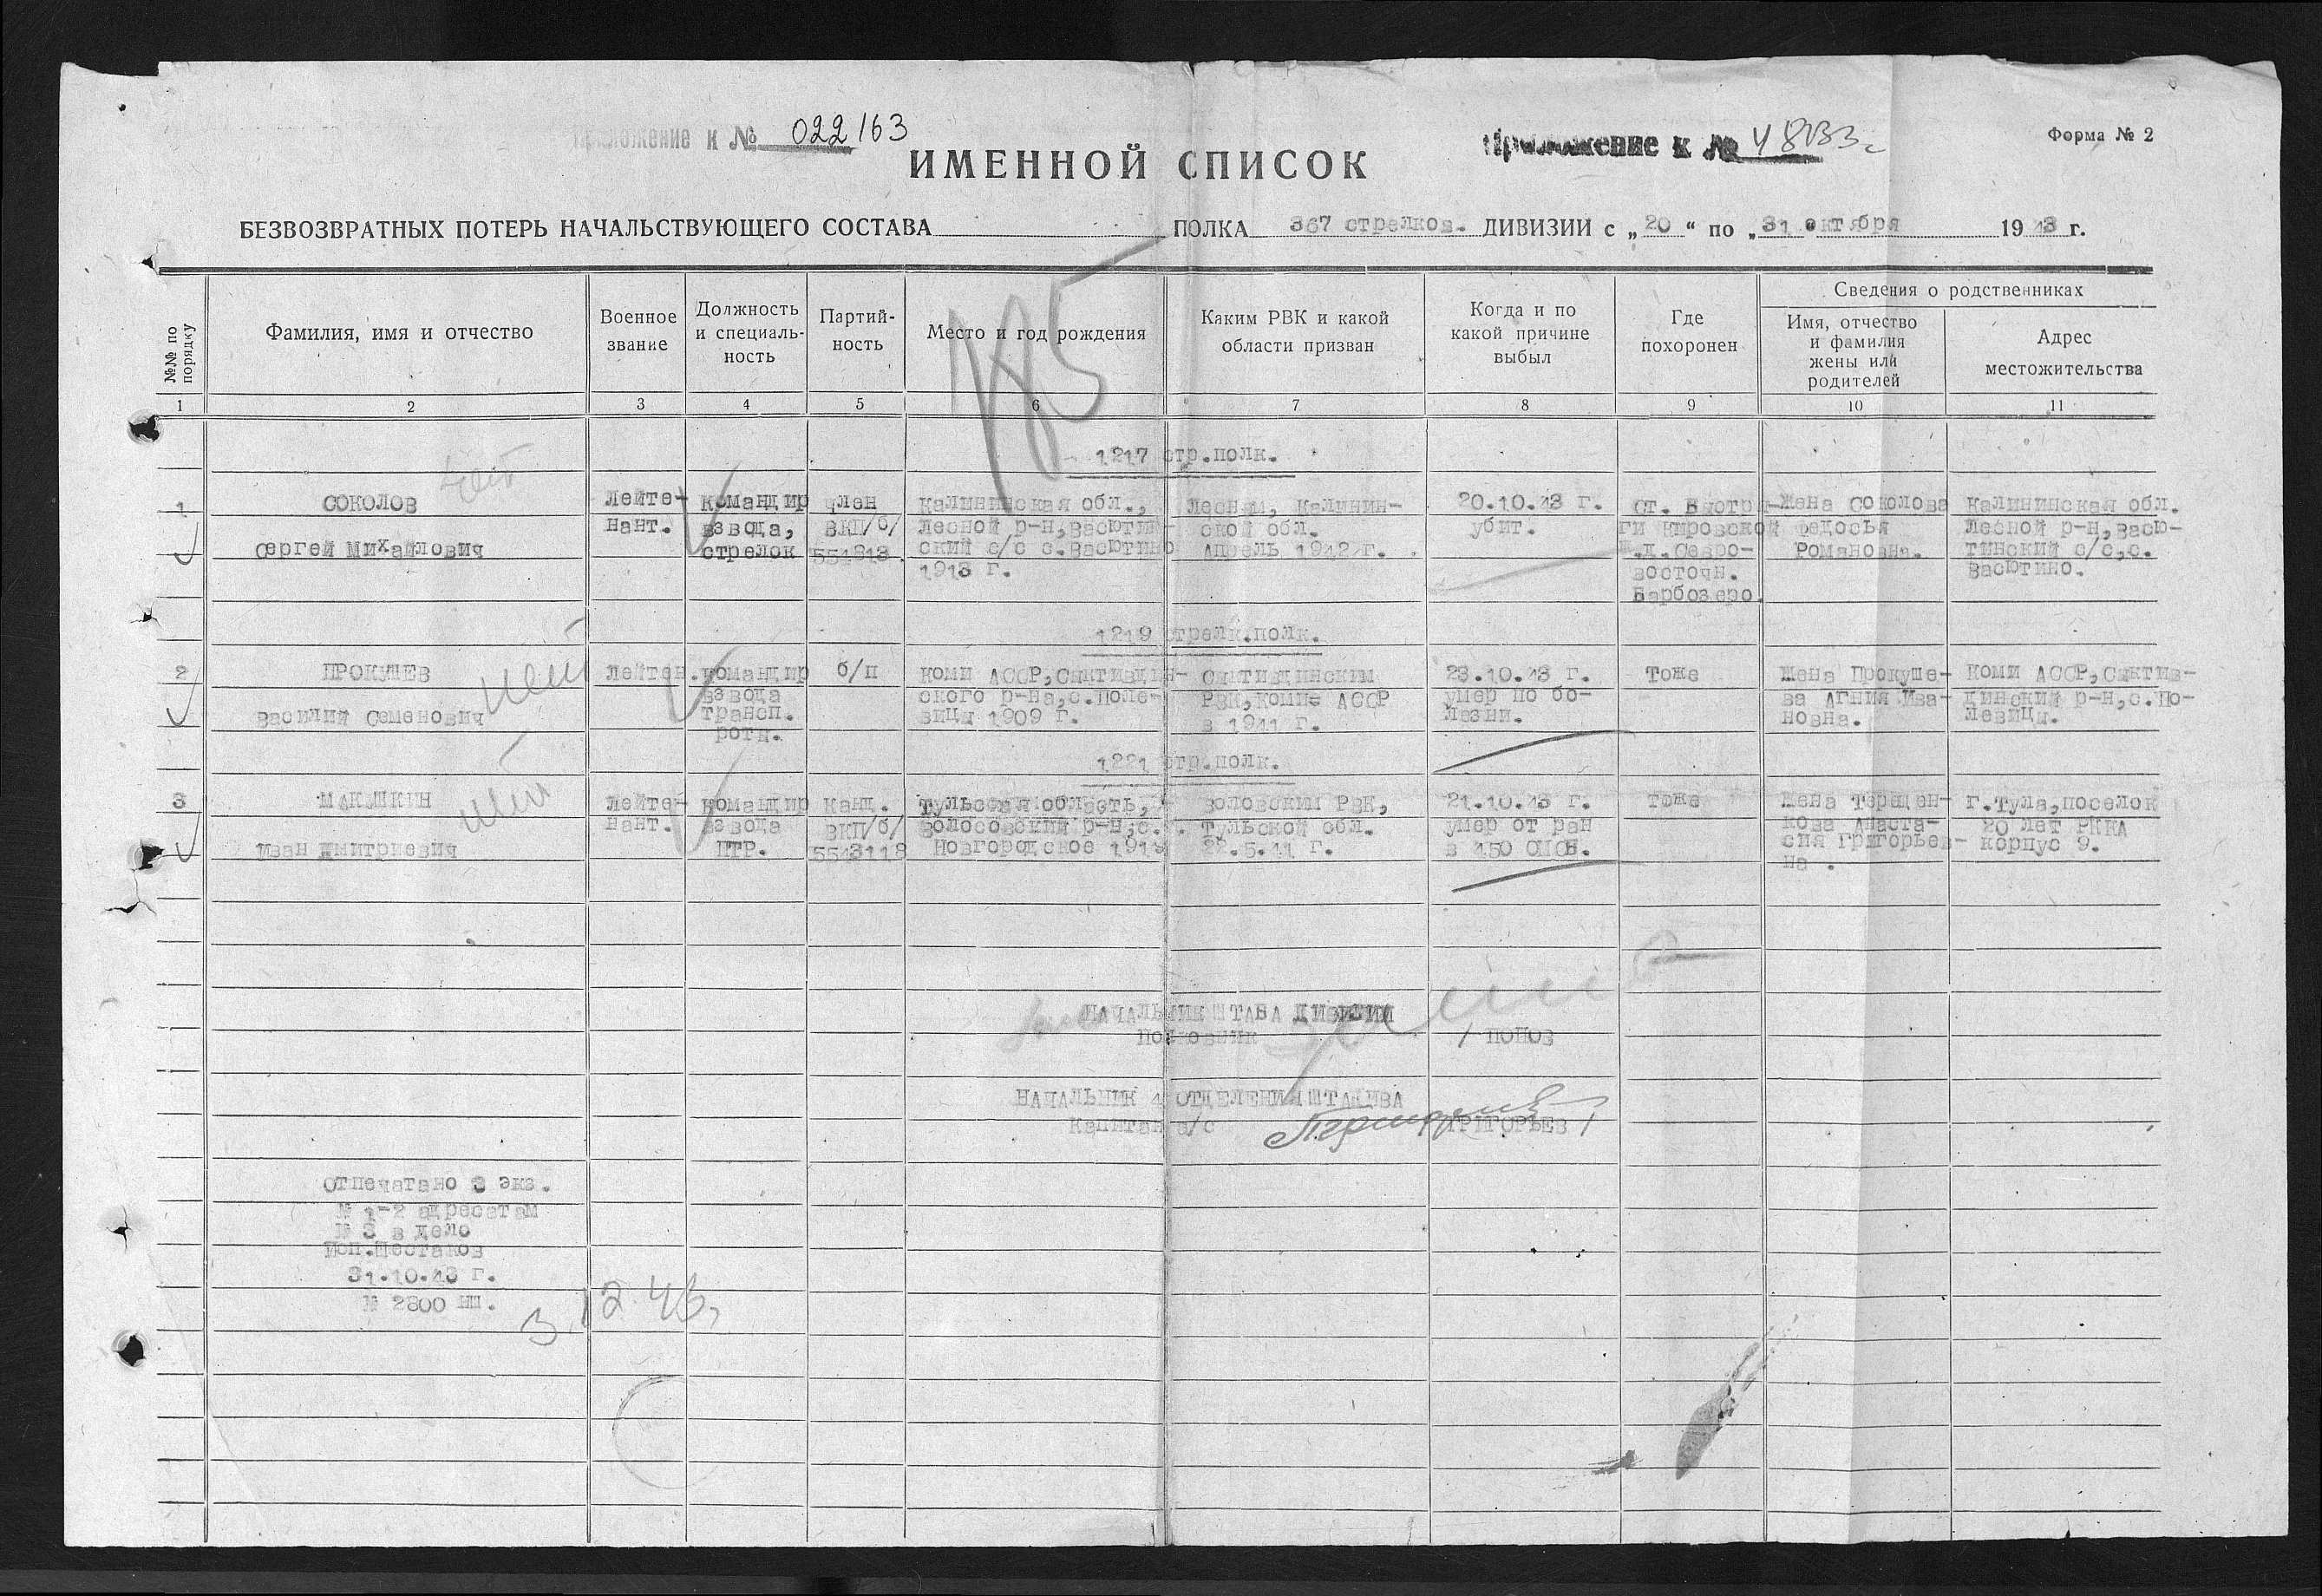 Приложение к № 022163
Приложение к №
Форма № 2
ИМЕННОЙ СПИСОК
БЕЗВОЗВРАТНЫХ ПОТЕРЬ НАЧАЛЬСТВУЮЩЕГО СОСТАВА ПОЛКА 367 стрелков. ДИВИЗИИ с „20“ по „31 октября 1943 г.
№№ по порядку
Фамилия, имя и отчество
Военное
звание
Должность
и специаль-
ность
Партий-
ность
Место и год рождения
Каким РВК и какой
области призван
Когда и по
какой причине
выбыл
Где
похоронен
Сведения о родственниках
Имя, отчество
и фамилия
жены или
родителей
Адрес
местожительства
1 2 3 4 5 6 7 8 9 10 11
1217 стр.полк.
1
СОКОЛОВ
Сергей Михайлович
Лейте-
нант.
Командир
взвода,
стрелок
член
ВКП/б/
Калининская обл.,
Лесной р-н, Васютин-
ский с/с с. Васютино
1913 г.
Лесным, Калинин-
ской обл.
Апрель 1942 г.
20.10.43 г.
убит.
ст.
ги Кировской
ж.д. Севро-
восточн.
Барбозеро.
Жена Соколова
Федосья
Романовна.
Калининская обл.
Лесной р-н, Васю-
тинский с/с, с.
Васютино.
1219 стрелк.полк.
2
ПРОКУШЕВ
Василий Семенович
нет
Лейтен.
командир
взвода
трансп.
роты.
б/п
Коми АССР, Сыктивдин-
ского р-на, с. Поле-
вицы 1909 г.
Сыктивдинским
РВК, Коми АССР
в 1941 г.
23.10.43 г.
умер по бо-
лезни.
Тоже
Жена Прокуше-
ва Агния Ива-
новна.
Коми АССР, Сыктив-
динский р-н, с. По-
левицы.
1221 стр.полк.
3
МАКШКИН
Иван Дмитриевич
нет
Лейте-
нант.
Командир
взвода
ПТР.
Канд.
ВКП/б/
5543118
Тульская область,
Волосовский р-н, с.
Новгородское
Воловским РВК,
Тульской обл.
22.5.41 г.
21.10.43 г.
умер от ран
в 450
Тоже
Жена Терещен-
кова Анаста-
сия Григорьев-
на.
г.Тула, поселок
20 лет РККА
корпус 9.
НАЧАЛЬНИК ШТАБА ДИВИЗИИ
Полковник / ПОПОВ
НАЧАЛЬНИК 4 ОТДЕЛЕНИЯ ШТАДИВА
Капитан а/с ГРИГОРЬЕВ /
Отпечатано 3 экз.
№ 1-2 адресатам
№ 3 в дело
Исп.Шестаков
31.10.43 г.
№ 2800 нш.
3.12.43